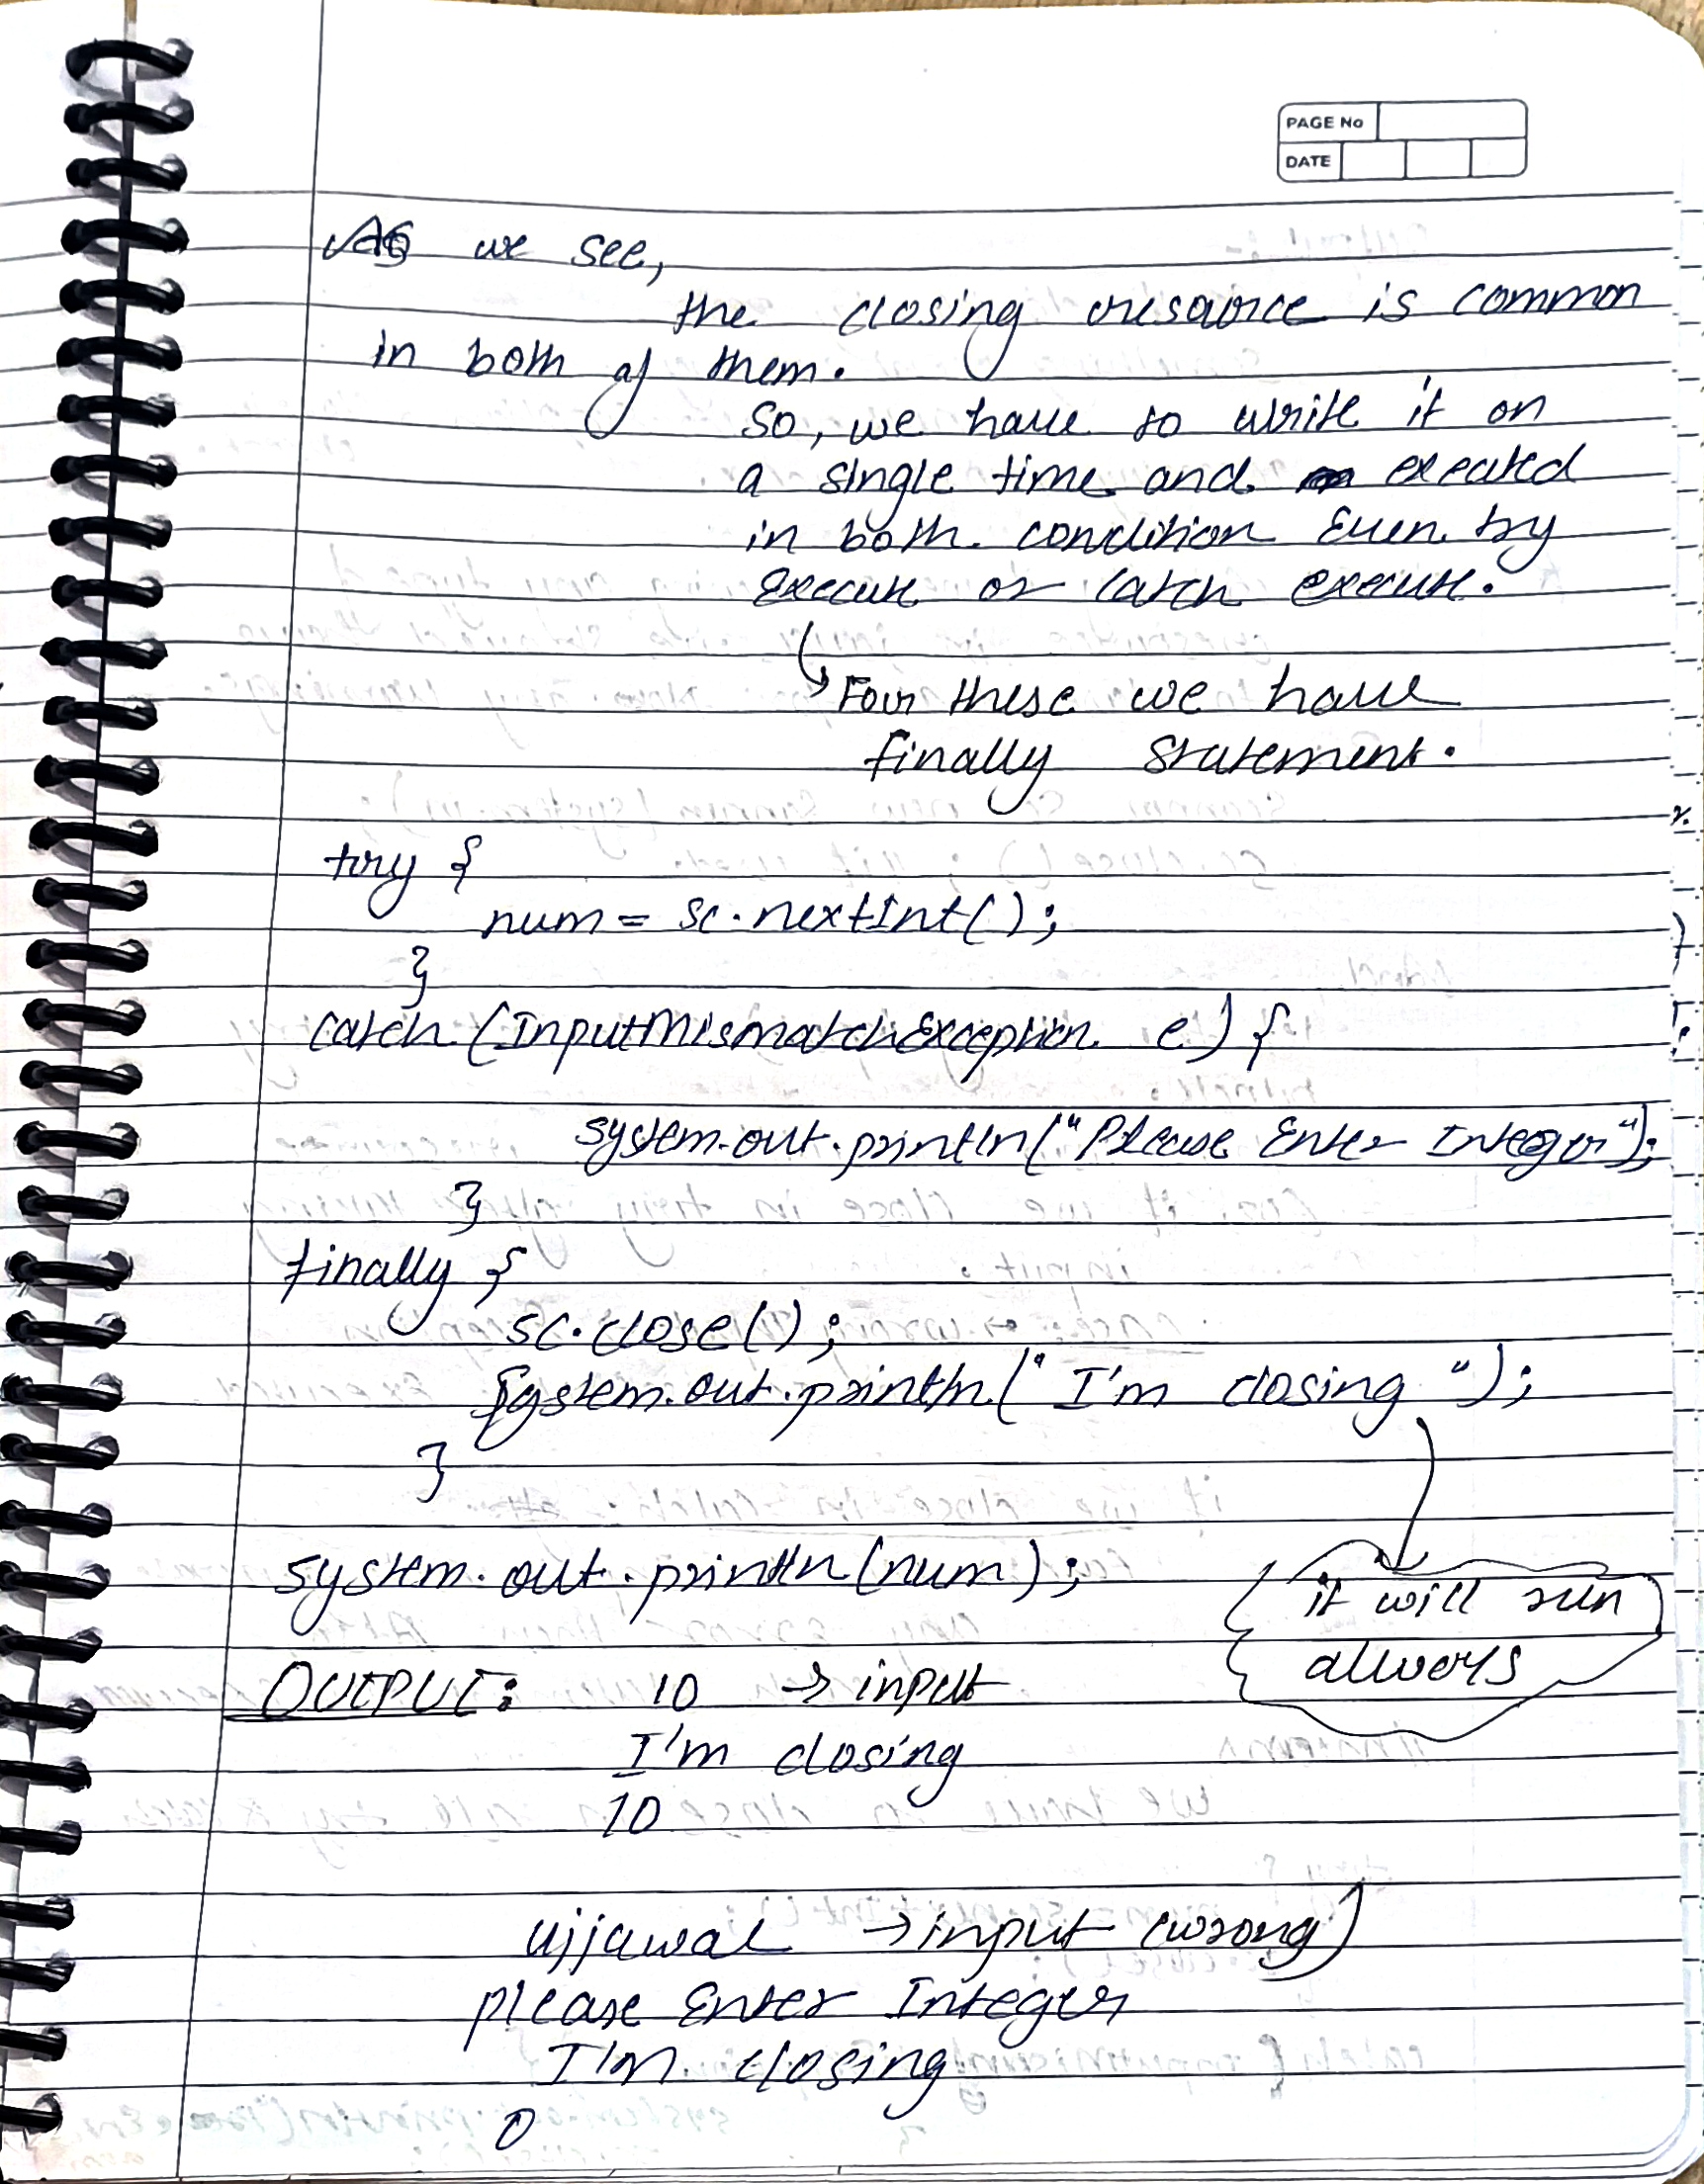 PAGE No
DATE
As we see,
the closing resource is common
in both of them.
So, we have to write it on
a single time and exeated
in both condition Even try
execute or catch execute.
For these we have
finally statement.
try {
num = sc.nextInt();
}
catch (InputMismatchException e) {
system.out.println("Please Enter Integer");
}
finally {
sc.close();
System.out.println("I'm closing ");
}
system.out.println(num);
it will run
always
OUTPUT: 10 → input
I'm closing
10
ujjawal → input (wrong)
please Enter Integer
I'm closing
0